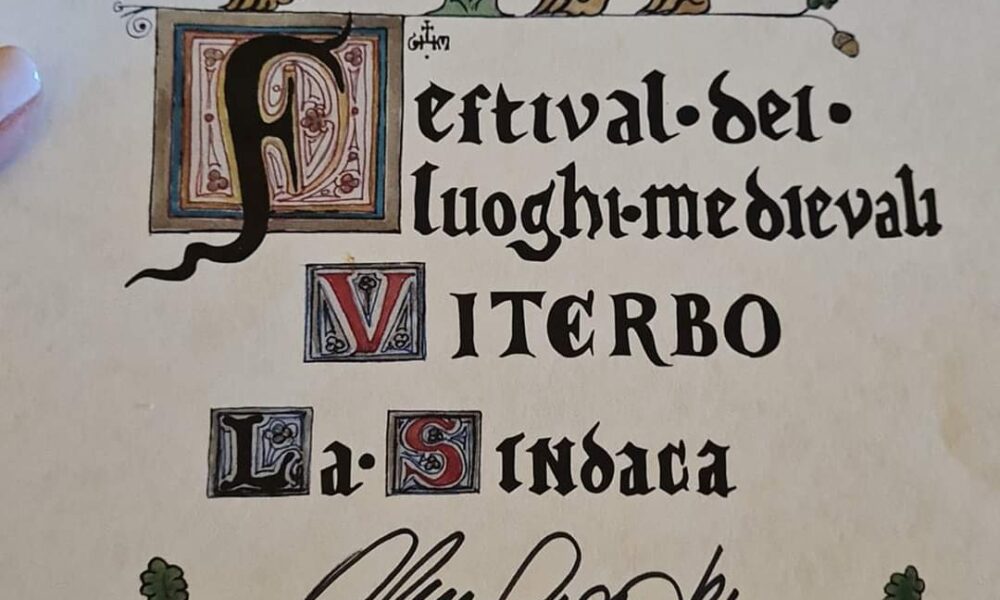 Festival·dei·
luoghi·medievali
VITERBO
La·Sindaca